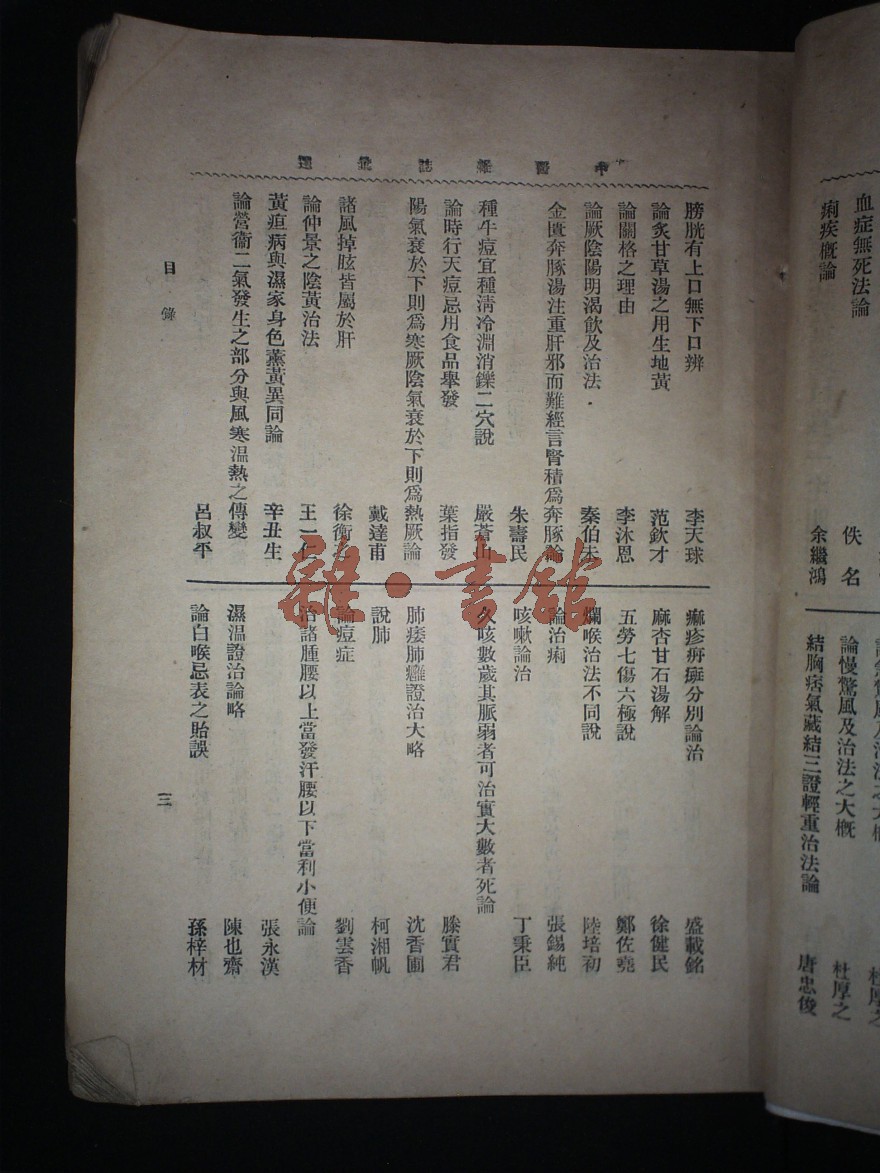 血症無死法論 佚名
痢疾概論 余繼鴻
論慢驚風及治法之大概 杜厚之
結胸痞氣藏結三證輕重治法論 唐忠俊
中醫雜誌彙選
膀胱有上口無下口辨 李天球
論炙甘草湯之用生地黃 范欽才
論關格之理由 李沐恩
論厥陰陽明渴飲及治法 秦伯未
金匱奔豚湯注重肝邪而難經言腎積爲奔豚論
朱壽民
種牛痘宜種淸冷淵消鑠二穴說 嚴蒼山
論時行天痘忌用食品舉發 葉指發
陽氣衰於下則爲寒厥陰氣衰於下則爲熱厥論
戴達甫
諸風掉眩皆屬於肝 徐衡之
論仲景之陰黃治法 王一仁
黃疸病與濕家身色薰黃異同論 辛丑生
論營衞二氣發生之部分與風寒温熱之傳變
呂叔平
痲疹㾦斑分別論治 盛載銘
麻杏甘石湯解 徐健民
五勞七傷六極說 鄭佐堯
爛喉治法不同說 陸培初
論治痢 張錫純
咳嗽論治 丁秉臣
久咳數歲其脈弱者可治實大數者死論
滕實君
肺痿肺癰證治大略 沈香圃
說肺 柯湘帆
論痘症 劉雲香
治諸腫腰以上當發汗腰以下當利小便論
張永漢
濕溫證治論略 陳也齋
論白喉忌表之貽誤 孫梓材
目錄
三
雜·書館